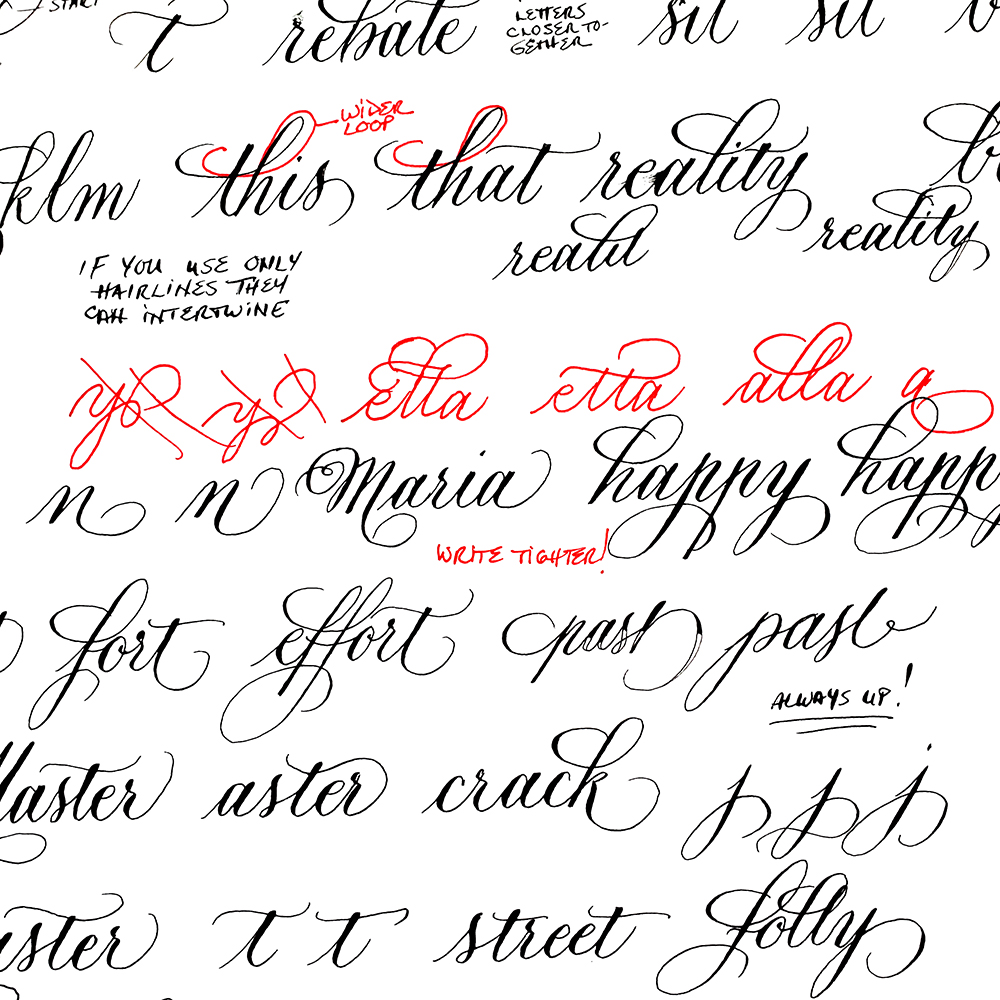 START
t rebate LETTERS CLOSER TO- GETHER sit sit
WIDER LOOP
klm this that reality
reatil reality
IF YOU USE ONLY
HAIRLINES THEY
CAN INTERTWINE
etta etta alla a
n n Maria happy happy
WRITE TIGHTER!
fort effort past past
ALWAYS UP!
aster aster crack
j j j
ster t t street folly